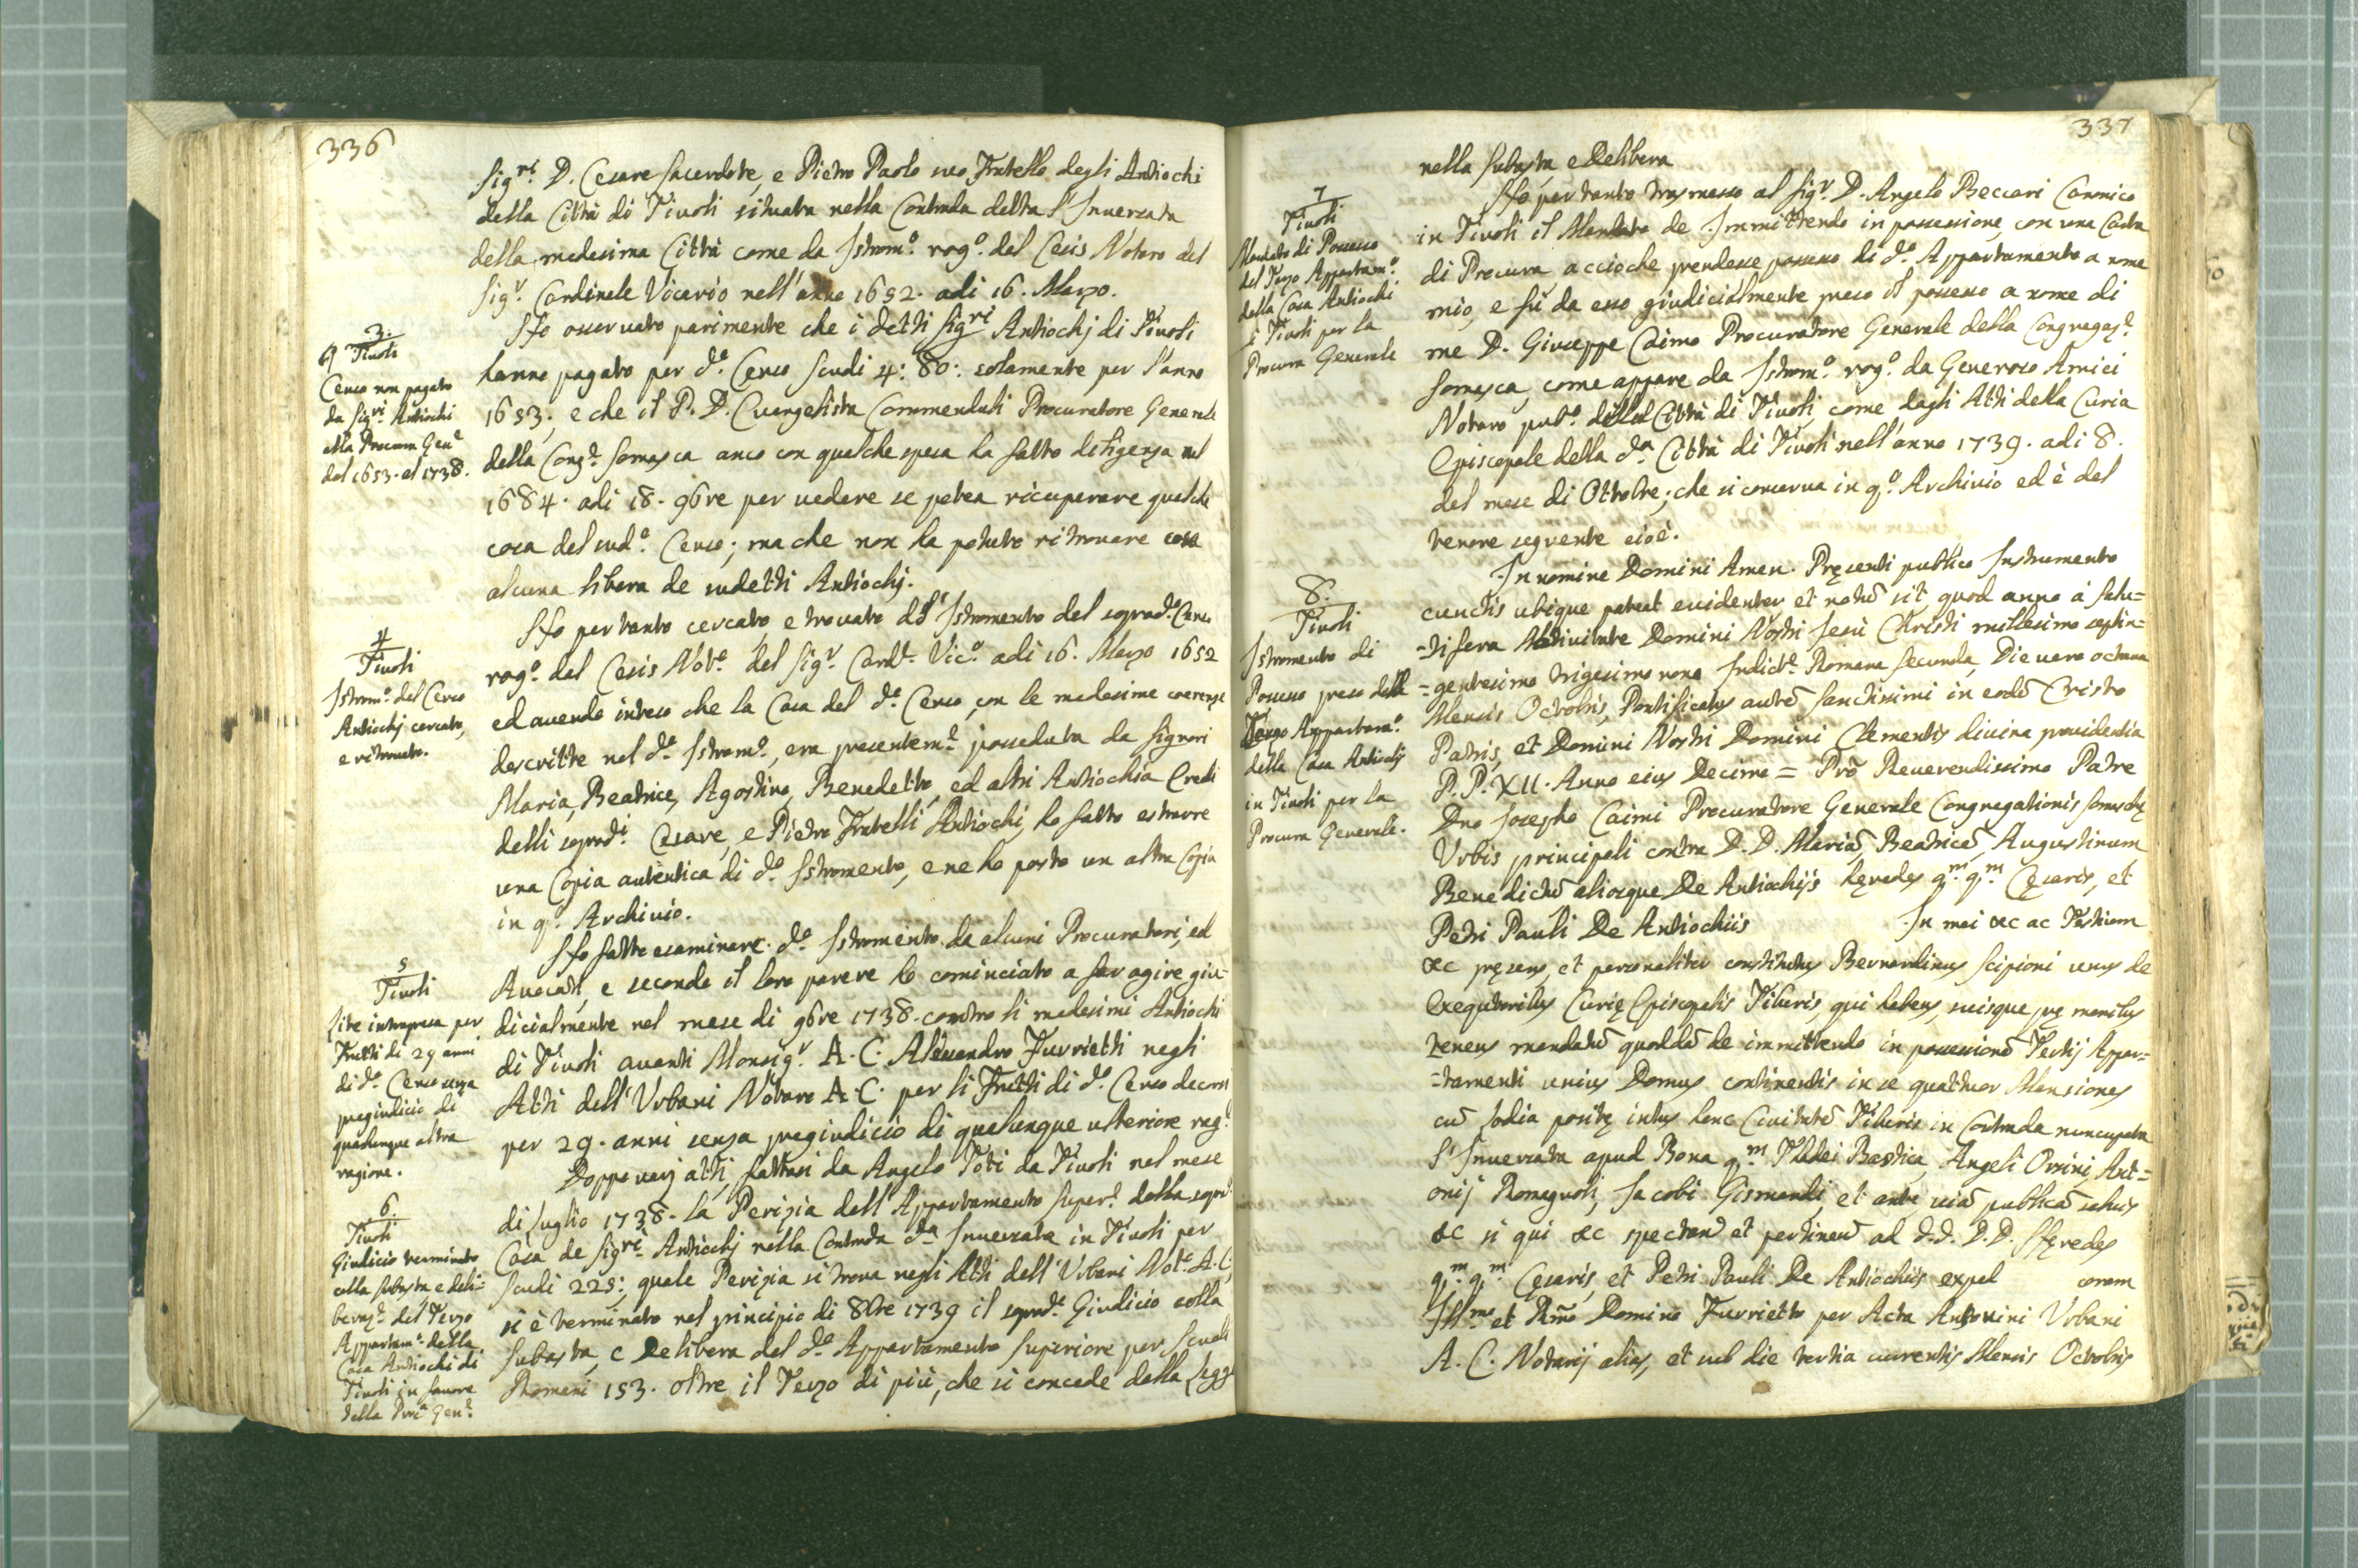 336
Sig.ri D. Cesare Sacerdote, e Pietro Paolo suo Fratello degli Antiochi
della Città di Tivoli situata nella Contrada detta l'Inversata
della medesima Città come da Istrom.o rog.o del Cesis Notaro del
Sig.r Cardinale Vicario nell'anno 1652. adi 16. Marzo.
3.
Tivoli
Censo non pagato
da Sig.ri Antiochi
alla Procura Gen.e
dal 1653. al 1738.
Ho osservato parimente che i detti Sig.ri Antiochj di Tivoli
hanno pagato per d.o Censo Scudi 4: 80: solamente per l'anno
1653; e che il P. D. Evangelista Commenduli Procuratore Generale
della Cong.e Somasca anco con qualche spesa ha fatto diligenza nel
1684. adi 18. 9bre per vedere se potea ricuperare qualche
cosa del sud.o Censo; ma che non ha potuto ritrovare cosa
alcuna libera de sudetti Antiochj.
4
Tivoli
Istrom.o del Censo
Antiochj cercato,
e ritrovato.
Ho per tanto cercato, e trovato dd.o Istromento del soprad.o Censo
rog.o dal Cesis Not.o del Sig.r Card.e Vic.o adi 16. Marzo 1652
ed avendo inteso che la Casa del d.o Censo, con le medesime coerenze
descritte nel d.o Istrom.o, era presentem.e posseduta da Signori
Maria, Beatrice, Agostino, Benedetto, ed altri Antiochia Eredi
delli soprad.i Cesare, e Pietro Fratelli Antiochi, ho fatto estrarre
una Copia autentica di d.o Istromento, e ne ho posto un altra Copia
in q.o Archivio.
5
Tivoli
Lite intrapresa per
Frutti di 29 anni
di d.o Censo senza
pregiudicio di
qualunque altra
ragione.
Ho fatto esaminare d.o Istromento da alcuni Procuratori, ed
Avocati, e secondo il loro parere ho cominciato a far agire giu-
dicialmente nel mese di 9bre 1738. contro li medesimi Antiochi
di Tivoli avanti Monsig.r A. C. Alessandro Furrietti negli
Atti dell'Urbani Notaro A. C. per li Frutti di d.o Censo decorsi
per 29. anni senza pregiudicio di qualunque ulteriore rag.e
6.
Tivoli
Giudicio terminato
colla subasta e deli-
beraz.e del Terzo
Appartam.o della
Casa Antiochi di
Tivoli in favore
della Proc.a Gen.e
Doppo varj atti, fattasi da Angelo Toti da Tivoli nel mese
di Luglio 1738. la Perizia dell'Appartamento Super.e della soprad.a
Casa de Sig.ri Antiochj nella Contrada d.a Inversata in Tivoli per
Scudi 225: quale Perizia si trova negli Atti dell'Urbani Not.o A. C.
si è terminato nel principio di 8bre 1739 il soprad.o Giudicio colla
Subasta, e Delibera del d.o Appartamento Superiore per Scudi
Romani 153. oltre il Terzo di più, che si concede dalla Legge
337
nella Subasta e Delibera
7
Tivoli
Mandato di Possesso
del Terzo Appartam.o
della Casa Antiochi
i Tivoli per la
Procura Generale
Ho per tanto trasmesso al Sig.r D. Angelo Beccari Canonico
in Tivoli il Mandato de Immittendo in possessione, con una Carta
di Procura, accioche prendesse possesso di d.o Appartamento a nome
mio, e fù da esso giudicialmente preso il possesso a nome di
me D. Giuseppe Caimo Procuratore Generale della Congregaz.e
Somasca, come appare da Istrom.o rog.o da Generoso Amici
Notaro pub.o della Città di Tivoli, come dagli Atti della Curia
Episcopale della d.a Città di Tivoli nell'anno 1739. adi 8.
del mese di Ottobre; che si conserva in q.o Archivio ed è del
tenore seguente cioè.
8.
Tivoli
Istromento di
Possesso preso dell
Terzo Appartam.o
della Casa Antiochj
in Tivoli per la
Procura Generale.
In nomine Domini Amen. Pręsenti publico Instrumento
cunctis ubique pateat evidenter et notũ sit quod anno à Salu=
=tifera Nativitate Domini Nostri Jesu Christi millesimo septin=
=gentesimo trigesimo nono Indict.e Romana secunda, Die vero octava
Mensis Octobris, Pontificatus autẽ Sanctissimi in eodẽ Cristo
Patris, et Domini Nostri Domini Clementis divina providentia
P. P. XII. Anno eius Decimo = Prõ Reverendissimo Patre
Dno Josepho Caimi Procuratore Generale Congregationis Somaschę
Urbis principali contra D. D. Mariã, Beatricẽ, Augustinum
Benedictũ aliosque De Antiochijs hęredes q.m q.m Cęsaris, et
Petri Pauli De Antiochiis In mei &c ac Testium
&c pręsens, et personaliter constitutus Bernardinus Scipioni unus de
Exequutoribus Curię Episcopalis Tiburis qui habens, suisque prę manibus
tenens mandatũ quoddã de immittendo in possessionẽ Tertij Appar=
=tamenti unius Domus continentis in se quattuor Mansiones
cũ Sodia positę intus hanc Civitatẽ Tiburis in Contrada nuncupata
l'Inversata apud Bona q.m Thadei Bastica, Angeli Orsini, Ant=
onij Romagnoli, Jacobi Gismondi, et ante viã publicã salvis
&c si qui &c spectand et pertinend ad d.d. D.D. Hęredes
q.m q.m Cęsaris, et Petri Pauli De Antiochiis expel coram
Ill.mo et Rmo Domino Furrietto per Acta Antonini Urbani
A. C. Notarij alias, et sub die tertia currentis Mensis Octobris